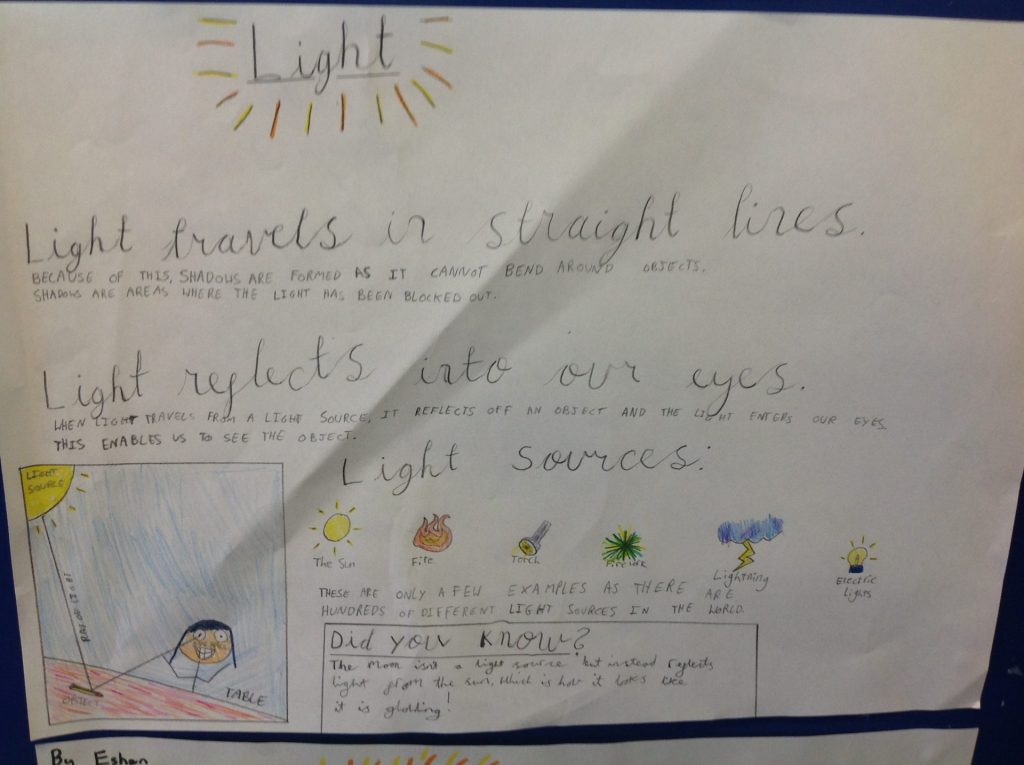 Light
Light travels in straight lines.
BECAUSE OF THIS, SHADOWS ARE FORMED AS IT CANNOT BEND AROUND OBJECTS.
SHADOWS ARE AREAS WHERE THE LIGHT HAS BEEN BLOCKED OUT.
Light reflects into our eyes.
WHEN LIGHT TRAVELS FROM A LIGHT SOURCE, IT REFLECTS OFF AN OBJECT AND THE LIGHT ENTERS OUR EYES.
THIS ENABLES US TO SEE THE OBJECT.
LIGHT
SOURCE
RAY OF LIGHT
OBJECT
TABLE
Light sources:
The Sun
Fire
Torch
Firework
Lightning
Electric
Lights
THESE ARE ONLY A FEW EXAMPLES AS THERE ARE
HUNDREDS OF DIFFERENT LIGHT SOURCES IN THE WORLD.
Did you know?
The Moon isn't a light source but instead reflects
light from the sun, which is how it looks like
it is glowing!
By Eshan